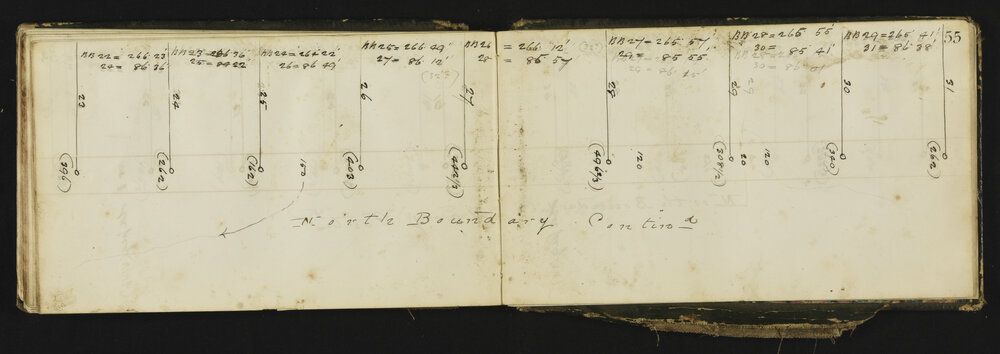 55
BB 22 = 266 23'
24 = 86 36'
BB 23 = 266 36'
25 = 84 22'
BB 24 = 264 22'
26 = 86 49'
BB 25 = 266 49'
27 = 86 12'
BB 26 = 266 12'
28 = 86 57
BB 27 = 265 57'
29 = 85 55'
BB 28 = 265 55'
30 = 85 41'
BB 29 = 265 41'
31 = 86 38'
23
24
25
26
27
28
29
30
31
(296)
(262)
(162)
150
(403)
(442 1/2)
(496 1/3)
120
(308 1/2)
20
120
(340)
(262)
North Boundary Contin d